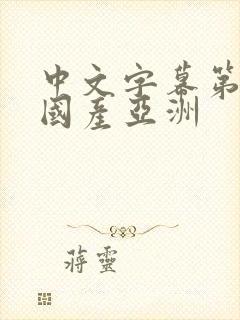 中文字幕第
國産亞洲
蔣靈